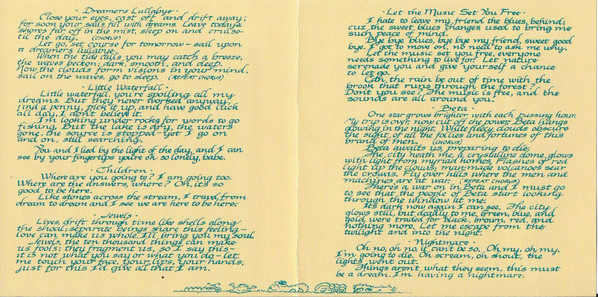 · Dreamers Lullabye ·
Close your eyes, cast off and drift away;
for soon your sails fill with dreams. Leave today's
shores far off in the mist, sleep on and cruise
til the day. (CHORUS)
Let go, set course for tomorrow – sail upon
a dreamers lullabye.
When the tide calls, you may catch a breeze,
the waves beckon; dark, smooth, and deep.
Now the clouds form visions in your mind,
sail on the waves, go to sleep. (REPEAT CHORUS)
· Little Waterfall ·
Little waterfall, you're spoiling all my
dreams. But they never worked anyway.
Find a penny, pick it up, and have good luck
all day, I don't believe it.
I'm looking under rocks for words to go
fishing. But the lake is dry, the water's
gone, the source is stopped yet I go on
and on, still searching.
You and I lied by the light of the day, and I can
see by your fingertips you're oh so lonely, babe.
· Children ·
Where are you going? I am going too.
Where are the answers, where? Oh, it's so
good to be here.
Like stones across the stream, I travel from
dream to dream and I see we are here to be here.
· Jewels ·
Lives drift through time like shells along
the shoal; separate beings share this feeling –
love can make us whole. I'll bring you my Soul
Jewels, the ten thousand things can make
us fools; they fragment us, so I say this –
it is not what you say or what you do – let
me touch your face, your lips, your hands,
just for this I'd give all that I am.
· Let the Music Set You Free ·
I hate to leave my friend the blues, behind;
cuz the sweet blues changes used to bring me
such peace of mind.
Bye bye blues, bye bye my friend, sweet good
bye. I got to move on, no need to ask me why.
Let the music set you free, everyone
needs something to live for. Let nature
serenade you and give yourself a chance
to let go.
Can the rain be out of time with the
brook that runs through the forest?
Don't you see? The music is free, and the
sounds are all around you.
· Beta ·
One star grows brighter with each passing hour.
My trip is over now, cut off my power. Beta hangs
glowing in the night. White fleecy clouds obscure
the sight, of all the follies and fortunes of this
brand of men. (CHORUS)
Beta awaits us, preparing to die;
The city neath me, a crystalline dome, glows
with light from myriad homes. Flashes of red
light tip the clouds; manmade volcanoes sear
the crowds. Fly over hills where the men and
machines are at war. (REPEAT CHORUS)
There's a war on by Beta and I must go
to see that the people of Beta start looking
through the window at me.
It's dark now again I can see. The city
glows still, but deadly to me. Green, blue, and
gold were traded for black, brown, red, and
nothing more. Let me escape from the
twilight and into the night.
· Nightmare ·
Oh no, oh no, it can't be so, Oh my, oh my,
I'm going to die. Oh scream, oh shout, the
lights went out.
Things aren't what they seem, this must
be a dream. I'm having a nightmare.